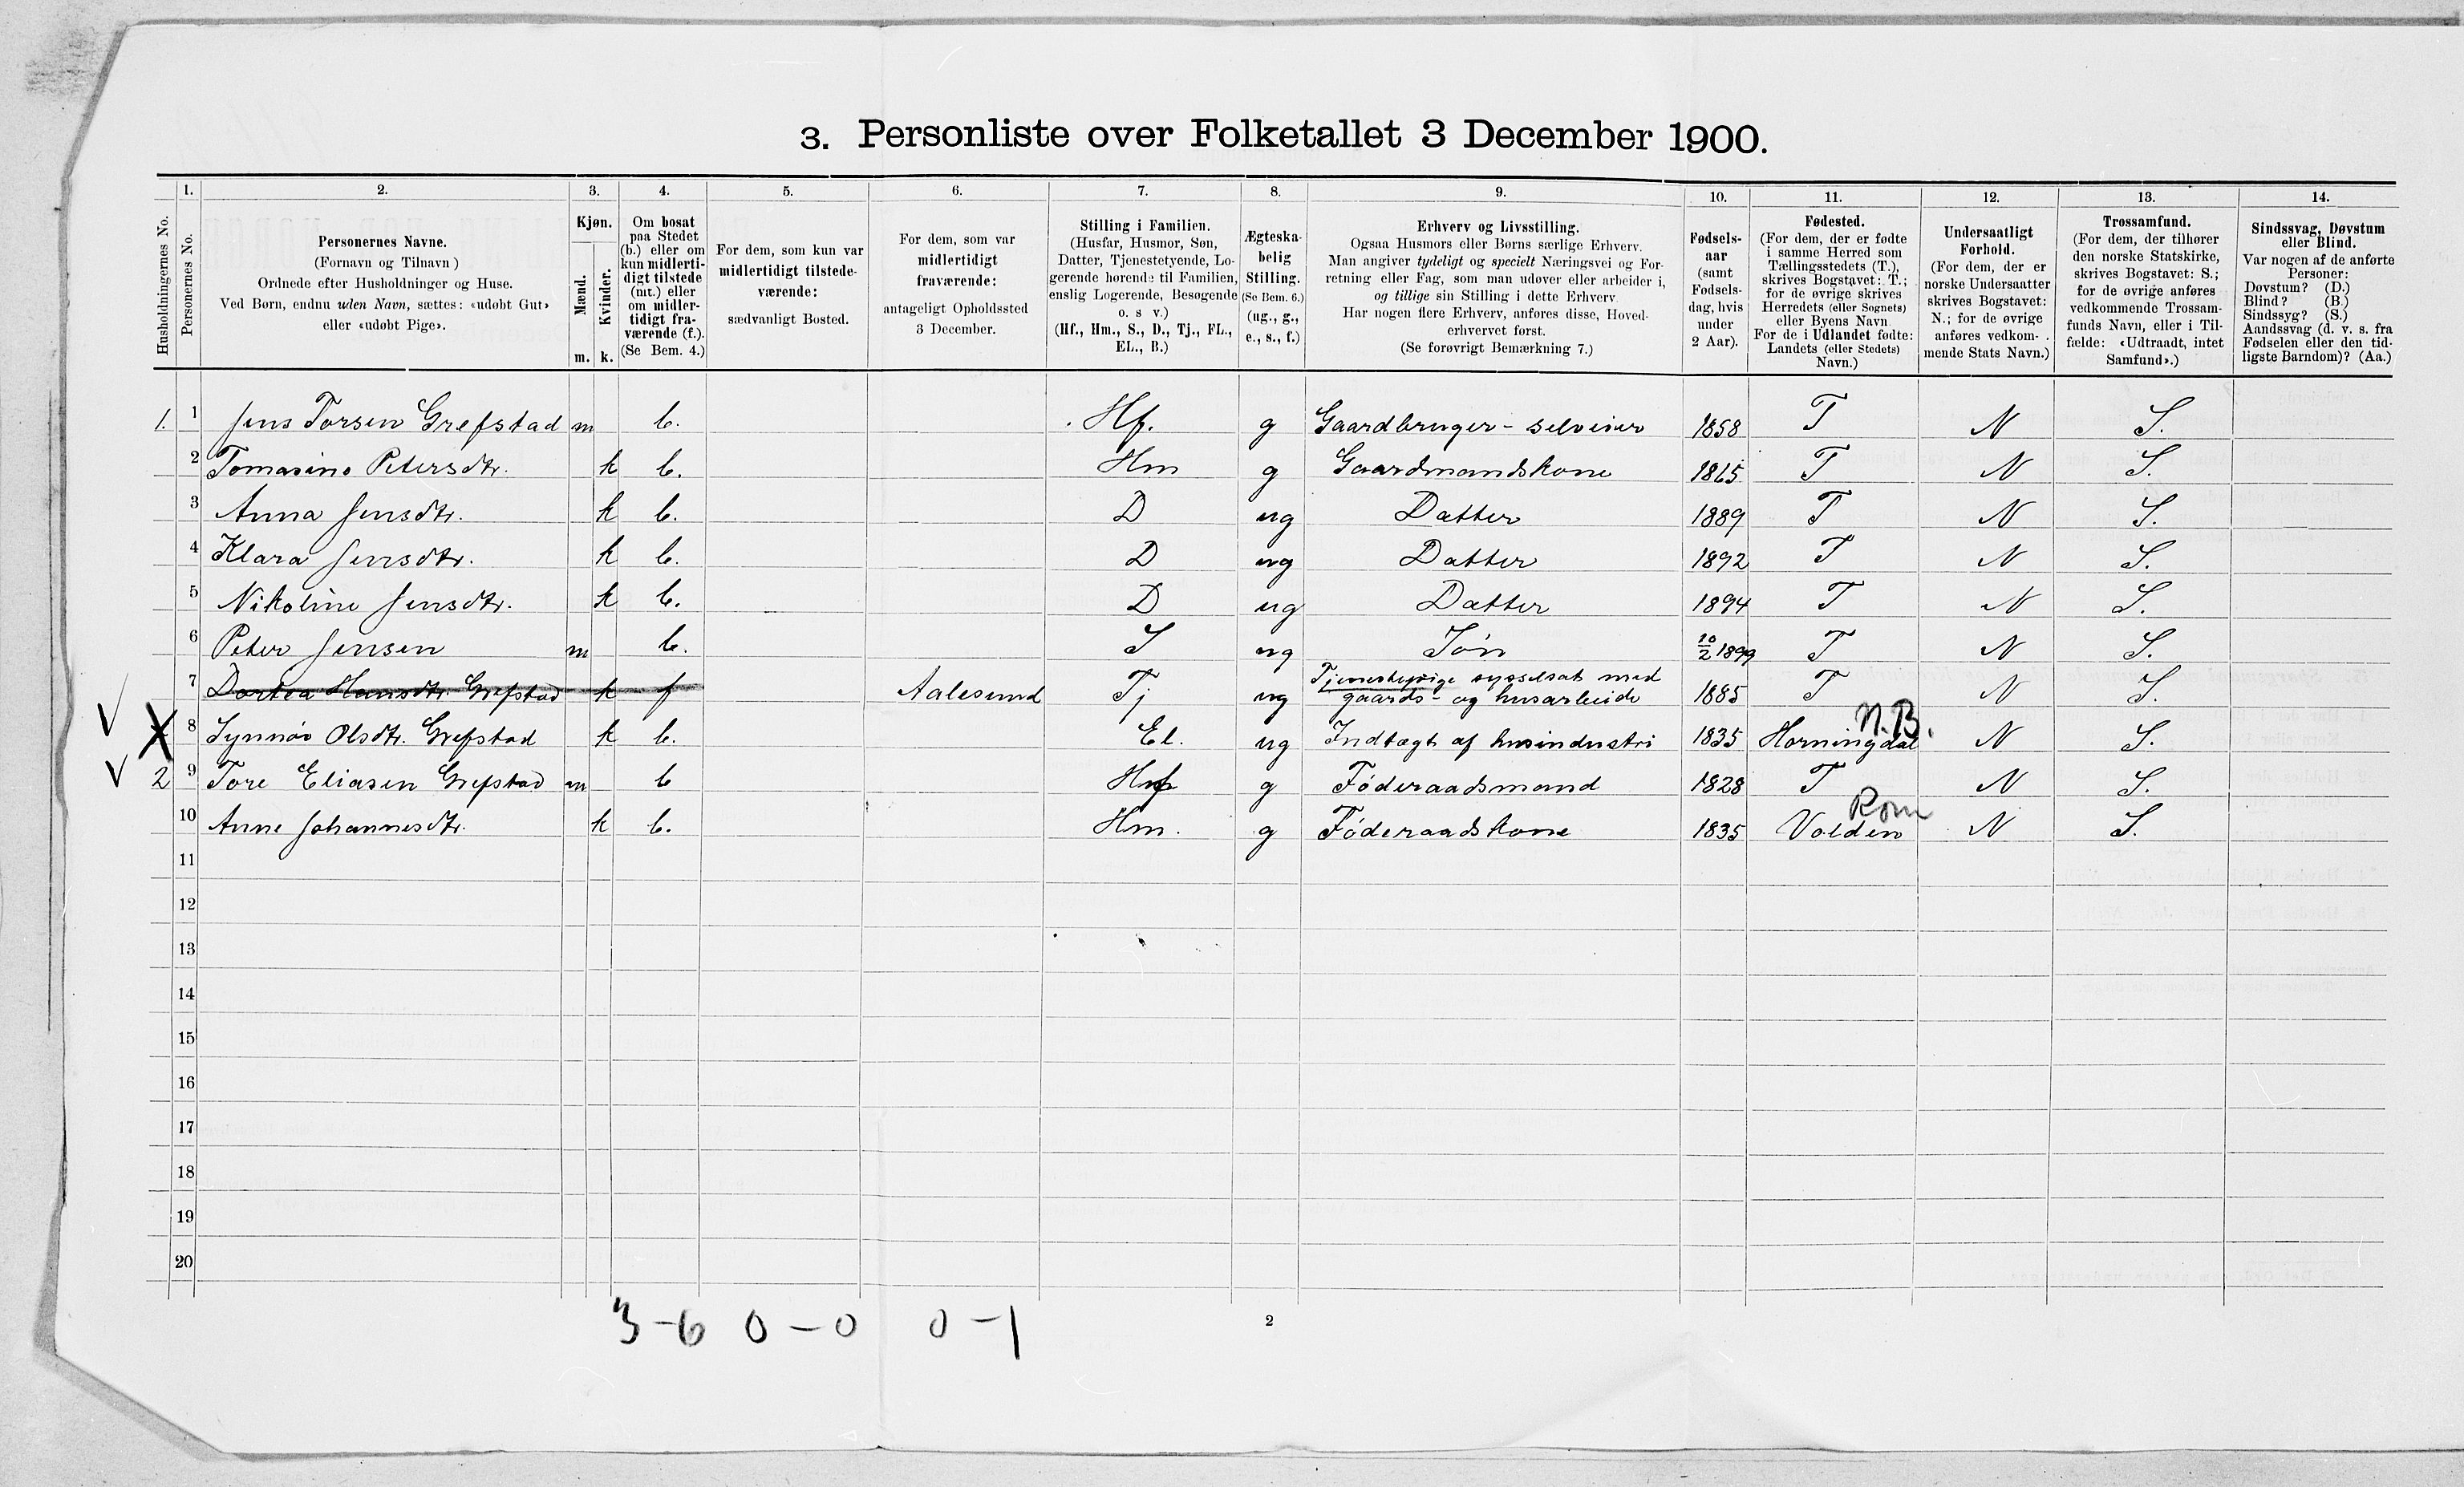 3. Personliste over Folketallet 3 December 1900.
1. 2. 3. 4. 5. 6. 7. 8. 9. 10. 11. 12. 13. 14.
Husholdningernes No.
Personernes No.
Personernes Navne.
(Fornavn og Tilnavn)
Ordnede efter Husholdninger og Huse.
Ved Børn, endnu uden Navn, sættes: «udøbt Gut»
eller «udøbt Pige».
Kjøn.
Mænd.
Kvinder.
m. k.
Om bosat
paa Stedet
(b.) eller om
kun midlerti-
digt tilstede
(mt.) eller
om midler-
tidigt fra-
værende (f.).
(Se Bem. 4.)
For dem, som kun var
midlertidigt tilstede-
værende:
sædvanligt Bosted.
For dem, som var
midlertidigt
fraværende:
antageligt Opholdssted
3 December.
Stilling i Familien.
(Husfar, Husmor, Søn,
Datter, Tjenestetyende, Lo-
gerende hørende til Familien,
enslig Logerende, Besøgende
o. s v.)
(Hf., Hm., S., D., Tj., FL.,
EL., B.)
Ægteska-
belig
Stilling.
(Se Bem. 6.)
(ug., g.,
e., s., f.)
Erhverv og Livsstilling.
Ogsaa Husmors eller Børns særlige Erhverv.
Man angiver tydeligt og specielt Næringsvei og For-
retning eller Fag, som man udøver eller arbeider i,
og tillige sin Stilling i dette Erhverv.
Har nogen flere Erhverv, anføres disse, Hoved-
erhvervet først.
(Se forøvrigt Bemærkning 7.)
Fødsels-
aar
(samt
Fødsels-
dag, hvis
under
2 Aar).
Fødested.
(For dem, der er fødte
i samme Herred som
Tællingsstedets (T.),
skrives Bogstavet: T.;
for de øvrige skrives
Herredets (eller Sognets)
eller Byens Navn.
For de i Udlandet fødte:
Landets (eller Stedets)
Navn.)
Undersaatligt
Forhold.
(For dem, der er
norske Undersaatter
skrives Bogstavet:
N.; for de øvrige
anføres vedkom-
mende Stats Navn.)
Trossamfund.
(For dem, der tilhører
den norske Statskirke,
skrives Bogstavet: S.;
for de øvrige anføres
vedkommende Trossam-
funds Navn, eller i Til-
fælde: «Udtraadt, intet
Samfund».)
Sindssvag, Døvstum
eller Blind.
Var nogen af de anførte
Personer:
Døvstum? (D.)
Blind? (B.)
Sindssyg? (S.)
Aandssvag (d. v. s. fra
Fødselen eller den tid-
ligste Barndom)? (Aa.)
1. 1 Jens Torsen Grefstad m b. Hf. g Gaardbruger - selveier 1858 T N S.
2 Tomasine Petersdtr. k b. Hm g Gaardmandskone 1865 T N S.
3 Anna Jensdtr. k b. D ug Datter 1889 T N S.
4 Klara Jensdtr. k b. D ug Datter 1892 T N S.
5 Nikoline Jensdtr. k b. D ug Datter 1894 T N S.
6 Peter Jensen m b. S ug Søn 10/2 1899 T N S.
7 Dortea Hansdtr. Grefstad k f Aalesund Tj ug Tjenestepige sysselsat med
gaards- og husarbeide 1885 T N S.
N.B.
8 Synnøv Olsdtr. Grefstad k b. El. ug Indtægt af husindustri 1835 Horningdal N S.
2 9 Tore Eliasen Grefstad m b Hf g Føderaadsmand 1828 T N S.
Rom
10 Anne Johannesdtr. k b. Hm. g Føderaadskone 1835 Volden N S.
11
12
13
14
15
16
17
18
19
20
3-6 0-0 0-1
2